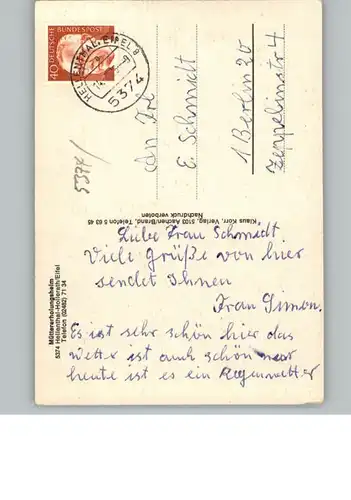 40 DEUTSCHE BUNDESPOST
HELLENTHAL, EIFEL
5374
5374/
An Fre
E. Schmidt
1 Berlin 20
Zeppelinstr 4
Klaus Korr, Verlag, 5103 Aachen/Brand, Telefon 5 63 45
Nachdruck verboten
Müttererholungsheim
5374 Hellenthal-Hollerath/Eifel
Telefon (02482) 71 34
Liebe Frau Schmidt.
Viele grüße von hier
sendet Ihnen
Frau Simon.
Es ist sehr schön hier das
Wetter ist auch schön nur
heute ist es ein Regenwetter